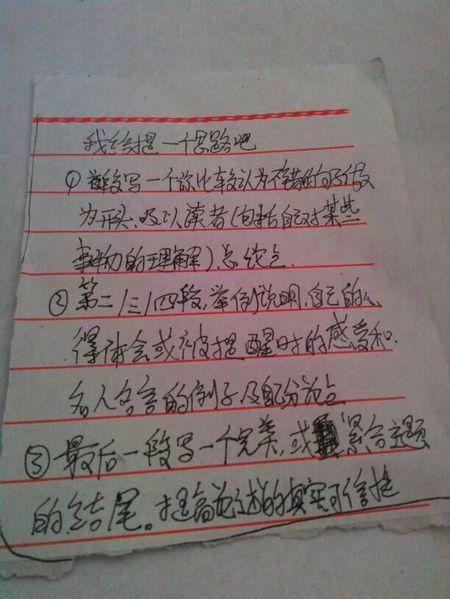 我给提一个思路吧
①首段写一个你比较认为不错的
为开头,吸引读者(包括自己对某些
事物的理解)总论点.
②第二/三/四段,举例说明,自己的心
得体会或被提醒时的感受和
名人名言的例子及
③最后一段写一个完美,或 紧合主题
的结尾。提高论述的真实可信性